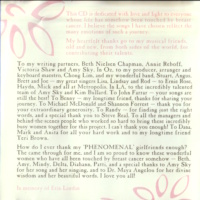 This CD is dedicated with love and light to everyone
whose life has somehow been touched by breast
cancer. I believe the songs I have chosen reflect the
many emotions of such a journey.
My heartfelt thanks go to my musical friends,
old and new, from both sides of the world, for
sharing their talents.
To my writing partners, Beth Nielsen Chapman, Annie Roboff,
Victoria Shaw and Amy Sky. To Oz, to my producer, arranger and
keyboard master, Chong Lim, and my wonderful band, Stuart, Angus,
Brett and Joe - my great singers Lisa, Lindsay and Rod - to Ernie Rose,
Haydn, Mick and all at Metropolis. In LA, to the incredibly talented
team of Amy Sky and Kim Bullard. To John Farrar - your songs are
still the best! To Bones - my longtime friend, thanks for sharing your
journey. To Michael McDonald and Shannon Forrest - thank you for
your extraordinary generosity. To Randy - for finding just the right
words, and a special thank you to Steve Real. To all the managers and
behind the scenes people who worked so hard to bring these incredibly
busy women together for this project. I can't thank you enough! To Dana,
Mark and Anita for all your hard work and to my longtime friend
Vici Brown.
How do I ever thank my 'PHENOMENAL' girlfriends enough?
The came through for me, and I am so proud to know these wonderful
women who have all been touched by breast cancer somehow - Beth,
Amy, Mindy, Delta, Diahann, Patti, and a special thanks to Amy Sky
for her song and her singing, and to Dr. Maya Angelou for her divine
wisdom and her beautiful words. I love you all!